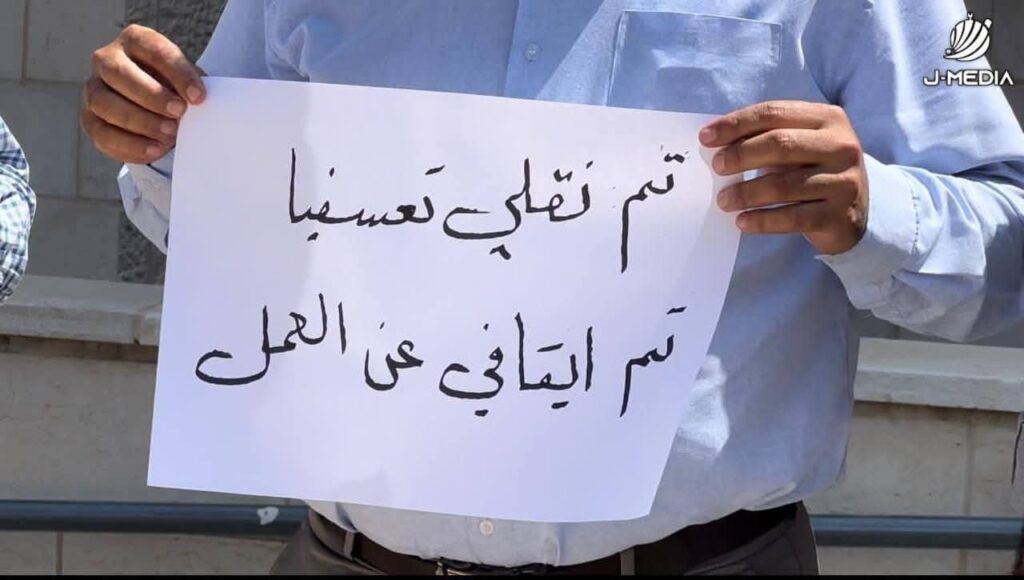 J-MEDIA
تم نقلي تعسفيا
تم ايقافي عن العمل